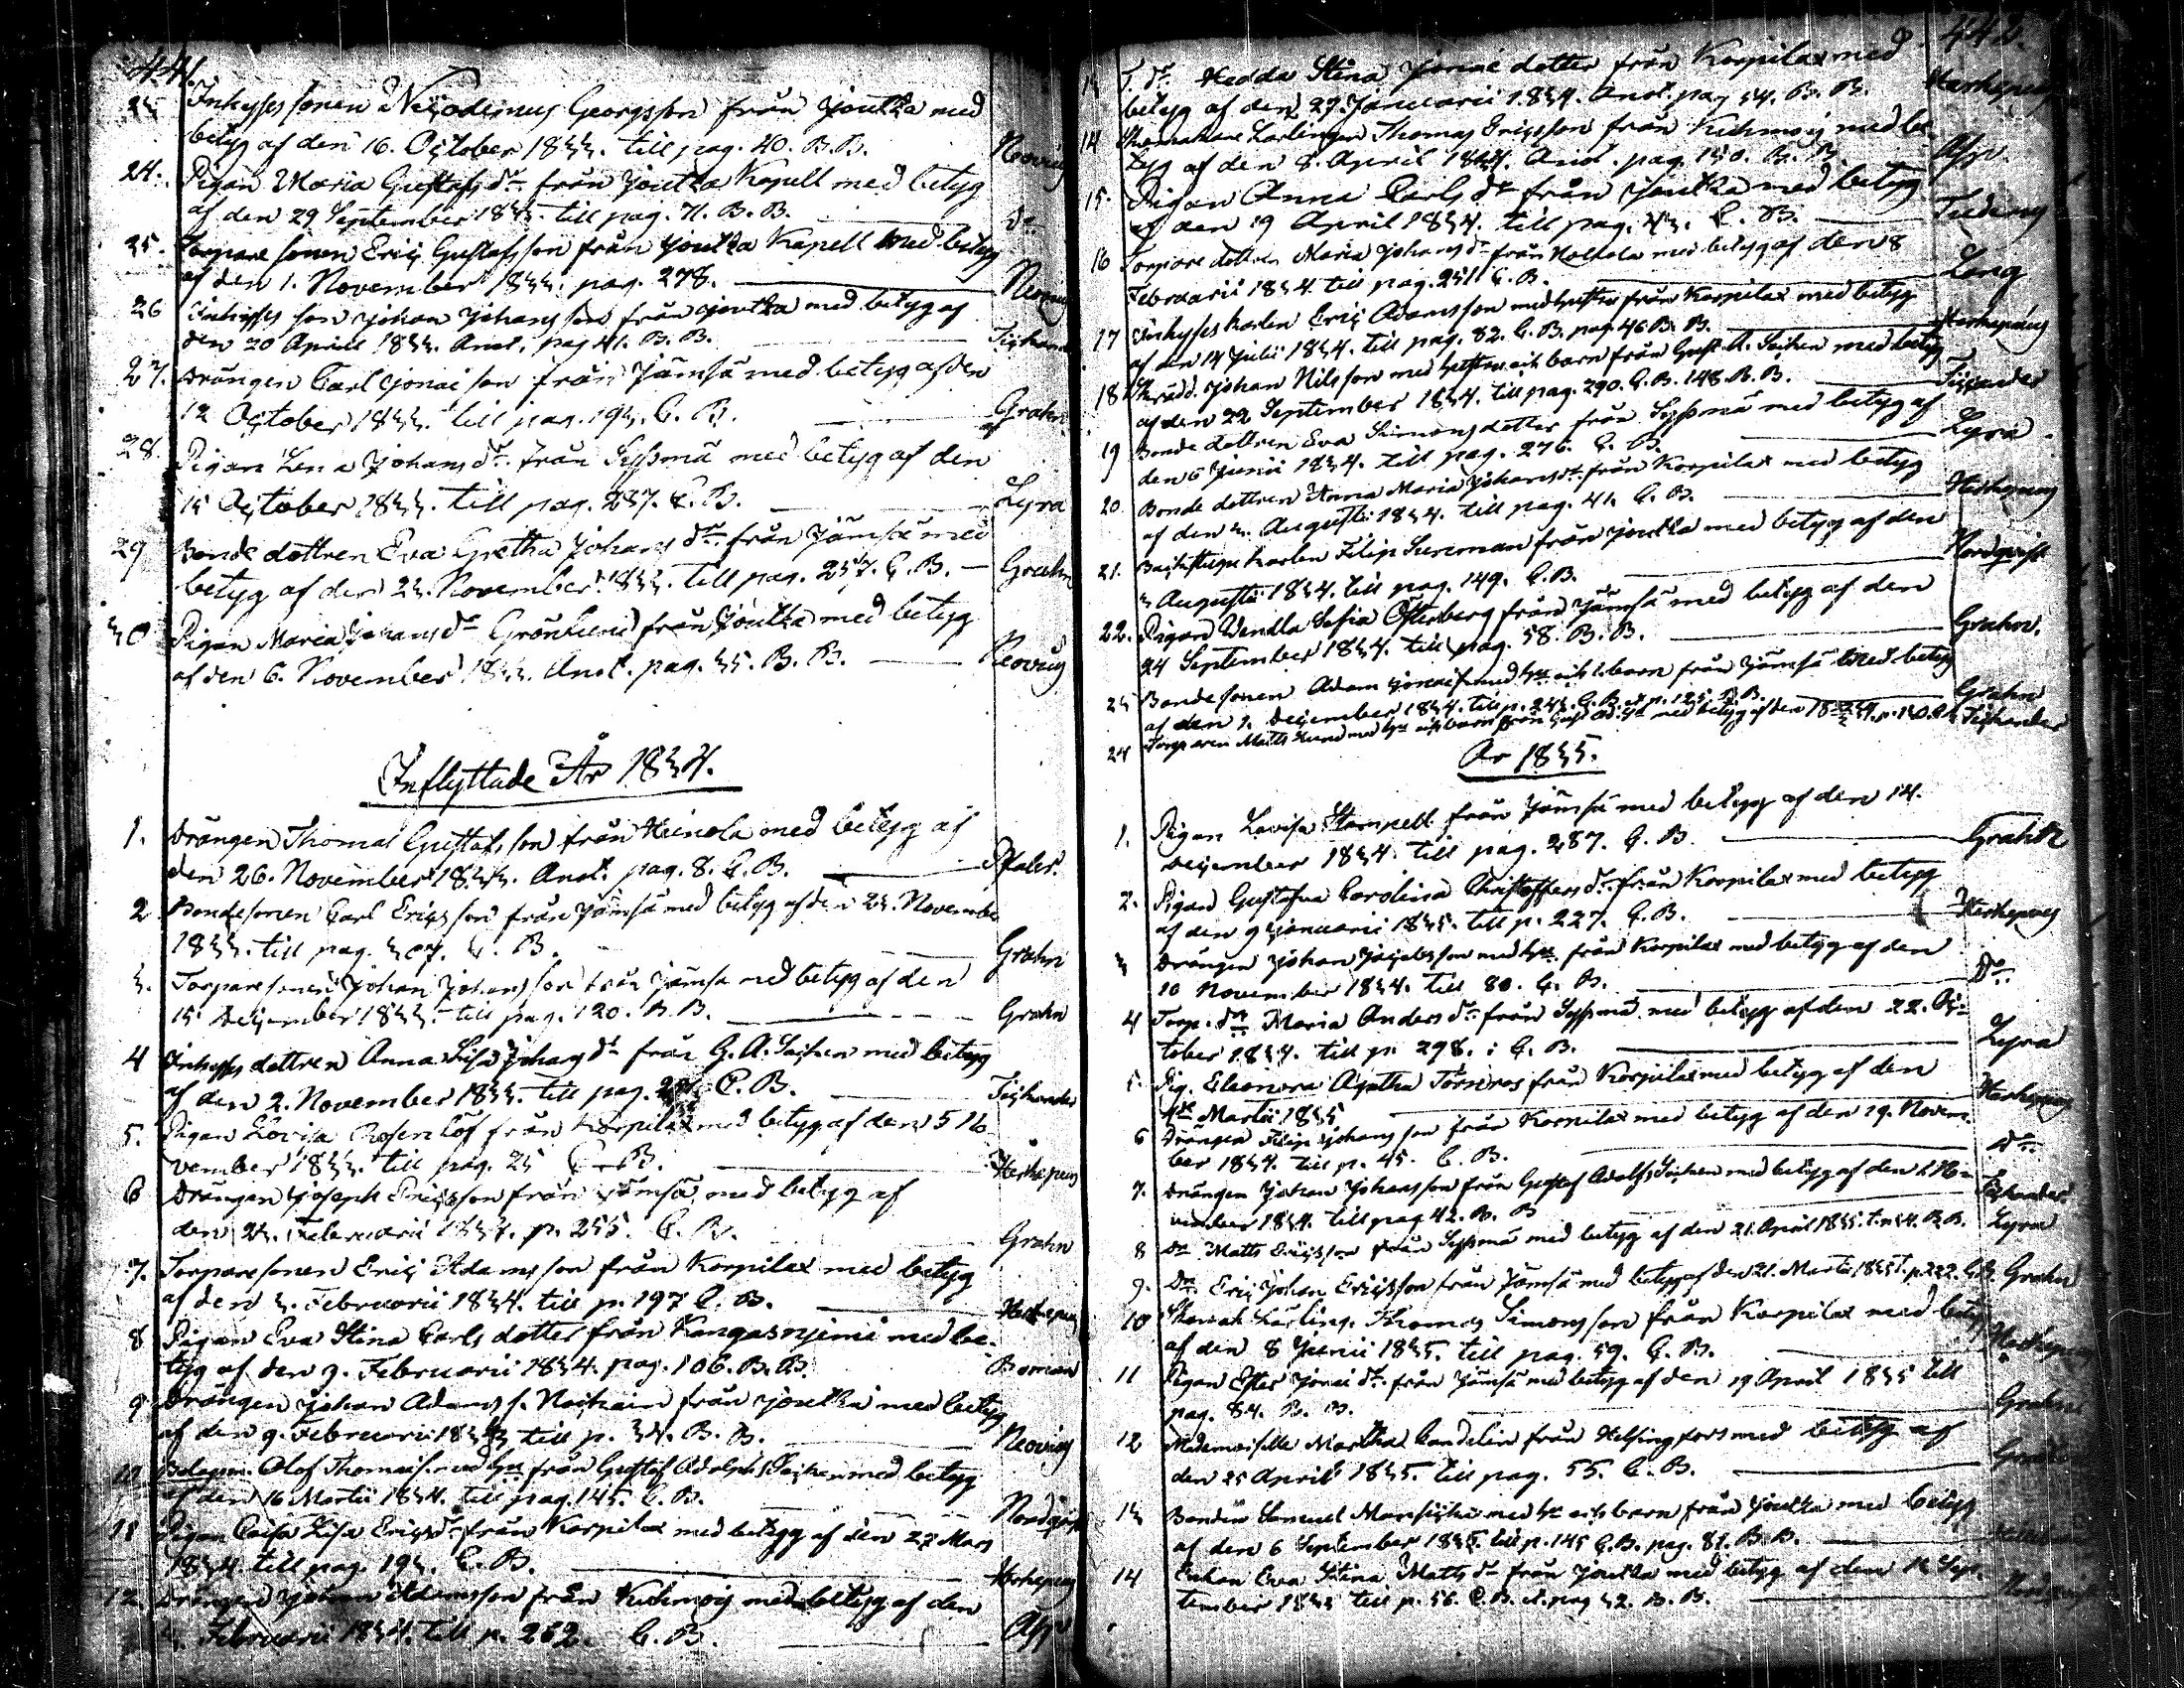 441.
23 Inhyses sonen Nicodemus Georgsson från Joutza med
betyg af den 16. October 1833. till pag. 40. B.B. Neovius
24. Pigan Maria Gustafs dr. från Joutza Kapell med betyg
af den 29 September 1833. till pag. 71. B.B. Do
25. Torpare sonen Eric Gustafsson från Joutza Kapell med betyg
af den 1. November 1833. pag. 278. Neovius
26 Inhyses son Johan Johansson från Joutza med betyg af
den 20 April 1833. Anot. pag 41. B.B. Tichander
27. Drängen Carl Jonaeson från Jämsä med betyg af den
12 October 1833. till pag. 193. C.B. Grahn
28. Pigan Lena Johans dr. från Sysmä med betyg af den
15 October 1833. till pag. 287. C.B. Lyra
29 Bonde dottren Eva Gretha Johans dr. från Jämsä med
betyg af den 23. November 1833. till pag. 257. C.B. Grahn
30 Pigan Maria Johans dr Grönlund från Joutza med betyg
af den 6. November 1833. Anot. pag. 35. B.B. Neovius
Inflyttade År 1834.
1. Drängen Thomas Gustafsson från Heinola med betyg af
den 26. November 1833. Anot. pag. 8. C.B. Pfaler.
2 Bondesonen Carl Ericsson från Jämsä med betyg af den 23. November
1833. till pag. 307. C.B. Grahn
3. Torpare sonen Johan Johansson från Jämsä med betyg af den
15 December 1833. till pag. 120. B.B. Grahn
4 Inhyses dottren Anna Lisa Johans dr från G. A. Sochen med betyg
af den 2. November 1833. till pag. C.B. Tichander
5. Pigan Lovisa Rosenlöf från Korpilax med betyg af den 5 No
vember 1833. till pag. 25 C.B. Herkepæus
6 Drängen Joseph Ericsson från Jämsä med betyg af
den 23. Februarii 1834. p. 255. C.B. Grahn
7. Torparesonen Eric Adamsson från Korpilax med betyg
af den 3. Februarii 1834. till p. 197 C.B. Herkepæus
8 Pigan Eva Stina Carls dotter från Kangasniemi med be
tyg af den 9. Februarii 1834. pag. 106. B.B. Borman
9 Drängen Johan Adams s. Nochain från Joutza med betyg
af den 9. Februarii 1834 till p. 34. B.B. Neovius
10 Olof Thomæs. med hu från Gustaf Adolphs Sochen med betyg
af den 16 Martii 1834. till pag. 145. C.B. Nordqvist
11 Pigan Caisa Lisa Ericsdr. från Korpilax med betyg af den 27 Mars
1834. till pag. 193. C.B. Herkepæus
12 Drängen Johan Adamsson från Kuhmois med betyg af den
3. Februarii 1834. till p. 262. C.B. Asp
442.
13 T. dr. Hedda Stina Jonæ dotter från Korpilax med
betyg af den 29 Januarii 1834. Anot. pag 54. B.B. Herkepæus
14 Skomakare Lärlingen Thomas Ericsson från Kuhmois med be
tyg af den 8. April 1834. Anot. pag. 150. B.B. Asp.
15. Pigan Anna Carls dr från Joutza med betyg
af den 19 April 1834. till pag. 43. C.B.
16 Torpare dottren Maria Johans dr från Hollola med betyg af den 8
Februarii 1834. till pag. 251 C.B. Long
17 Inhyses karlen Eric Adamsson med hustru från Korpilax med betyg
af den 14 Julii 1834. till pag. 82. C.B. pag. 46 B.B. Herkepæus
18 Skrädd. Johan Nilsson med hustru och barn från Gust. A. Sochen med betyg
af den 22 September 1834. till pag. 290. C.B. 148. B.B. Tichander
19 Bonde dottren Eva Simons dotter från Sysmä med betyg af
den 5 Junii 1834. till pag. 276. C.B. Lyra
20. Bonde dottren Anna Maria Johansdr. från Korpilax med betyg
af den 3. Augusti 1834. till pag. 41. C.B. Herkepæus
21. Backstugu karlen Filip Sureman från Joutza med betyg af den
3 Augusti 1834. till pag. 149. C.B. Nordqvist
22. Pigan Wendla Sofia Österberg från Jämsä med betyg af den
24 September 1834. till pag. 58. B.B. Grahn.
23 Bonde sonen Adam Jonæs. med hu och 1. barn från Jämsä med betyg
af den 1. December 1834. till p. 243. C.B. et p. 125. B.B. Grahn
24 Torparen Matts Lund med hu och barn från Gust. Ad. Sn med betyg af den Tichander
År 1835.
1. Pigan Lovisa Stampell från Jämsä med betyg af den 14.
December 1834. till pag. 287. C.B. Grahn
2. Pigan Gustafva Carolina Christoffers dr. från Korpilax med betyg
af den 9 Januarii 1835. till p. 227. C.B. Herkepæus
3 Drängen Johan Jacobsson med hu från Korpilax med betyg af den
10 November 1834. till 80. C.B. Do
4 Torp. dr. Maria Anders dr. från Sysmä med betyg af den 22. Oc-
tober 1834. till p. 298. i C.B. Lyra
5 Pig. Eleonora Agatha Törnros från Korpilax med betyg af den
Martii 1835 Herkepæus
6 Drängen Filip Johansson från Korpilax med betyg af den 19. Novem-
ber 1834. till p. 45. C.B. Do
7. Drängen Johan Johansson från Gustaf Adolfs Sochen med betyg af den 1. No-
vember 1834. till pag 42. B.B Tichander
8 Dr Matts Ericsson från Sysmä med betyg af den 21. April 1835. t. p. 34. B.B. Lyra
9. Dr. Eric Johan Ericsson från Jämsä med betyg af den 21. Martii 1835 t. p. 222. C.B. Grahn
10 Skomak. Lärling. Thomas Simonsson från Korpilax med betyg
af den 8 Junii 1835. till pag. 59. C.B. Herkepæus
11 Pigan Ester Jonæ dr. från Jämsä med betyg af den 19 April 1835 till
pag. 84. B.B. Grahn
12 Mademoiselle Martha Candelin från Helsingfors med betyg af
den 25 April 1835. till pag. 55. C.B.
13 Bonden Samuel med hu och barn från Joutza med betyg
af den 6 September 1835. till p. 145 C.B. pag. 81. B.B.
14 Enkan Eva Stina Matts dr från Joutza med betyg af den 12 Sep-
tember 1835 till p. 56. C.B. et. pag 32. B.B.